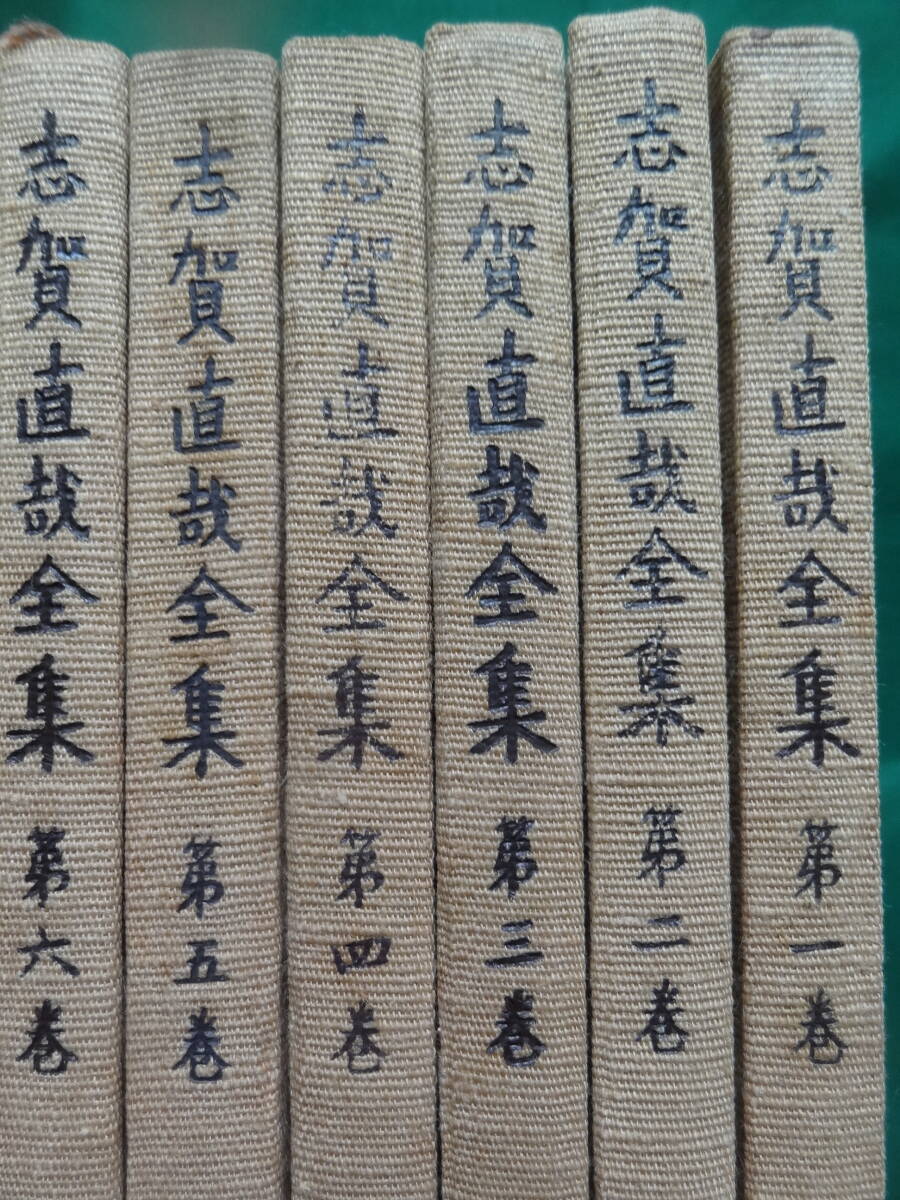 志賀直哉全集 第一巻
志賀直哉全集 第二巻
志賀直哉全集 第三巻
志賀直哉全集 第四巻
志賀直哉全集 第五巻
志賀直哉全集 第六巻